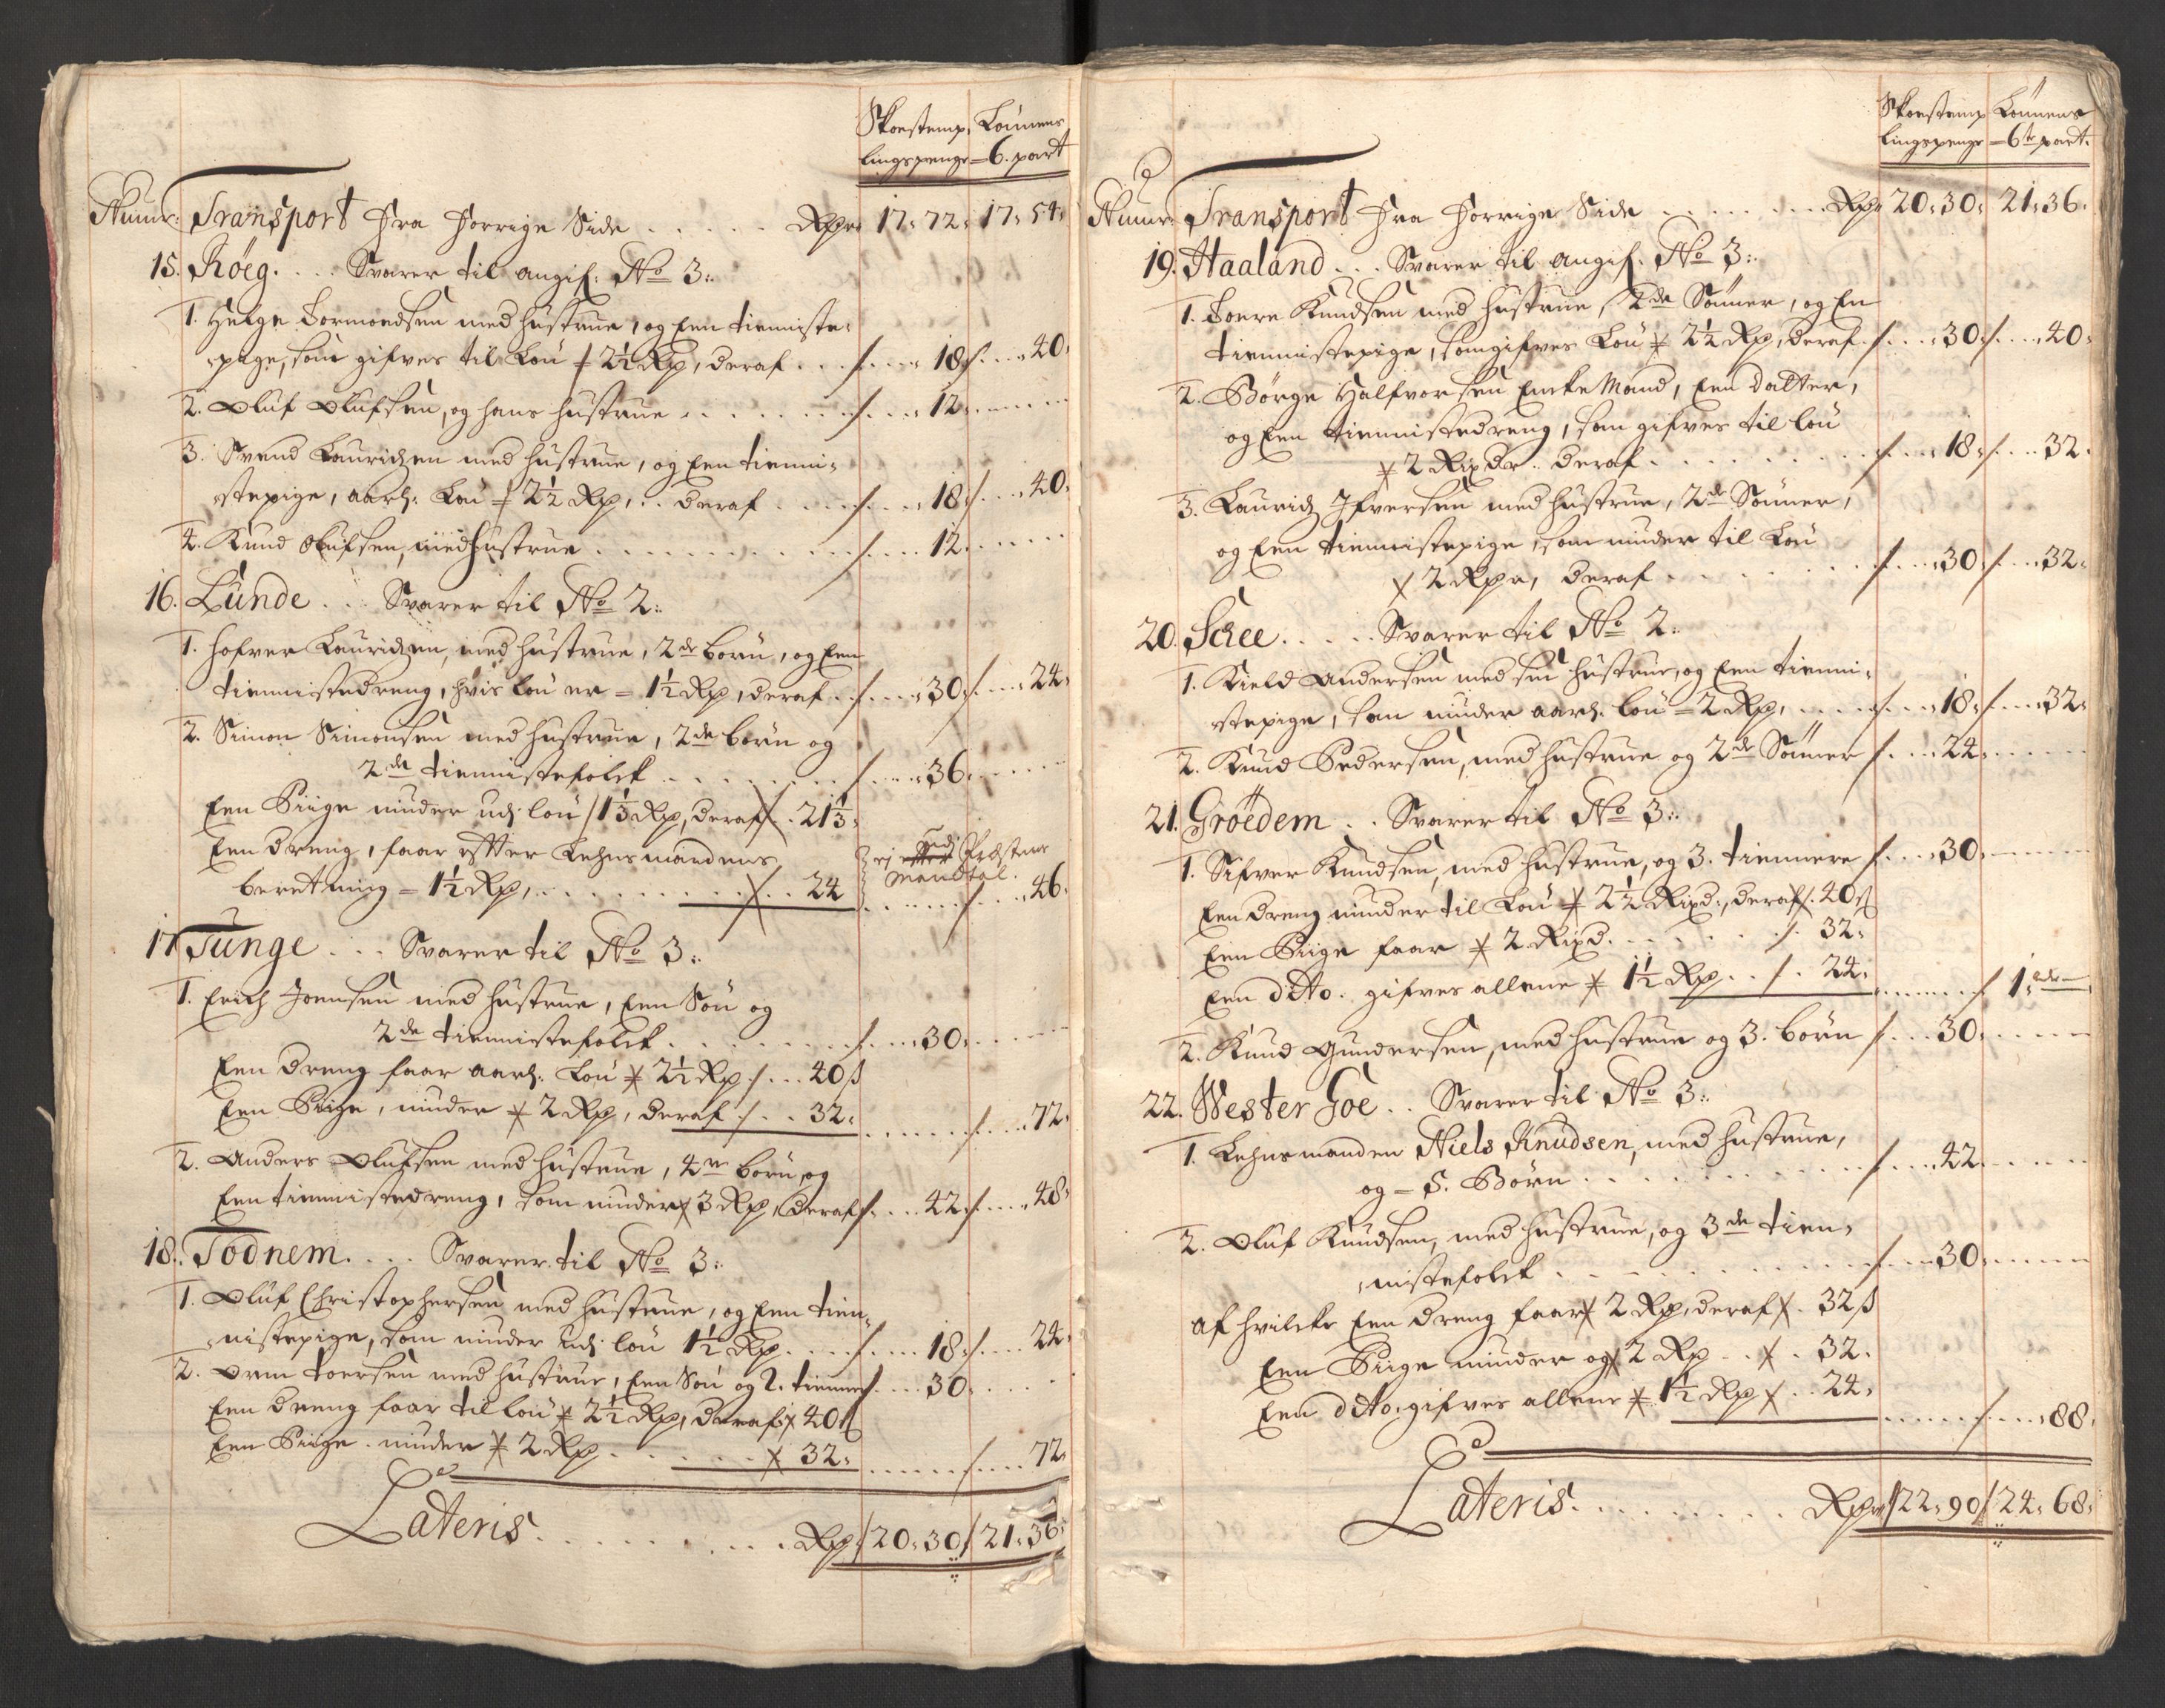 Skoestemp, Lönnens
lingspenge = 6. part
Numr: Transport fra forrige Side ..... Rpr 17: 72: 17: 54:
15. Röeg. ... Svarer til angif: No 3:.
1. Helge Tormoedsen med hustrue, og Een tienniste,
pige, som gifves til Lön ≠ 2½ Rp, deraf ... 18 / .... 40:
2. Oluf Olufsen, og hans hustrue ........ 12 ......
3. Svend Lauridzen med hustrue, og Een tienni,
stepige, aarl: Lön ≠ 2½ Rp, .. deraf .... 18 / .... 40:
4. Knud Olufsen, med hustrue .......... 12 ......
16. Lunde .. Svarer til No 2:.
1. Hofver Lauridzen, med hustrue, 2de börn, og Een
tiennistedreng, hvis lön er = 1½ Rp, deraf .. 30: / .... 24:
2. Simon Simonsen med hustrue, 2de börn og
2de tiennistefolck ........ 36. .....
Een Piige nyder udj lön / 1⅓ Rp, deraf .. 21⅓:
Een dreng, faar effter Lehnsmandens
ej udj Præstens
Mandtal.
beretning = 1½ Rp, ......... 24 ....... / .... 46:
17 Tunge ... Svarer til No 3:.
1. Erich Joensen med hustrue, Een Sön og
2de tiennistefolck ........ 30: .....
Een dreng faar aarl: Lön ≠ 2½ Rp / ... 40 ß
Een Piige, nyder ≠ 2 Rp, deraf / .. 32: ....... / .... 72:
2. Anders Olufsen med hustrue, 4re börn, og
Een tiennistedreng, som nyder ≠ 3 Rp, deraf / .... 42 / .... 48:
18. Todnem. ... Svarer til No 3:.
1. Oluf Christophersen med hustrue, og Een tien,
nistepige, som nyder udj lön 1½ Rp. .... 18: / .... 24:
2. Orm Toersen med hustrue, Een Sön og 2. tiennere / ... 30. .....
Een dreng faar til lön ≠ 2½ Rp, deraf ≠ 40 ß
Een Piige nyder ≠ 2 Rp ...... 32: ....... / .... 72:
Lateris. .......... Rp / 20: 30 / 21: 36:
Skoestemp Lönnens
lingspenge = 6te part.
Numr: Transport fra forrige Side ........ Rp 20: 30: 21: 36:
19. Haaland ... Svarer til angif. No 3:.
1. Toere Knudsen med hustrue, 2de Sönner, og En
tiennistepige, som gifves Lön ≠ 2½ Rp, deraf / ... 30 / .... 40:
2. Börge Halfvorsen Encke Mand, Een datter,
og Een tiennistedreng, som gifves til lön
≠ 2 Rixdr. deraf ........ 18: / .... 32.
3. Lauridz Ifversen med hustrue, 2de Sönner,
og Een tiennistepige, som nyder til Lön
≠ 2 Rpr, deraf ........ 30 / .... 32:
20. Schee. .... Svarer til No 2:.
1. Kield Andersen med sin hustrue, og Een tienni,
stepige, som nyder aarl. lön = 2 Rp, .... 18: / .... 32:
2. Knud Pedersen, med hustrue og 2de Sönner / ... 24: .....
21. Gröedem .. Svarer til No 3:.
1. Sifver Knudsen, med hustrue, og 3. tiennere / ... 30: .....
Een dreng nyder til Lön ≠ 2½ Rixd., deraf / . 40 ß
Een Piige faar ≠ 2 Rixd. ...... / . 32:
Een dito. gifves allene ≠ 1½ Rp .. / . 24: ....... / 1: —
2. Knud Gundersen, med hustrue og 3. börn / ... 30: .....
22. Wester Goe .. Svarer til No 3:.
1. Lehnsmanden Niels Knudsen, med hustrue,
og = 5. Börn ........... 42. .....
2. Oluf Knudsen, med hustrue, og 3de tien,
nistefolck ........... 30: .....
af hvilcke Een dreng faar ≠ 2 Rp, deraf ≠ . 32 ß
Een Piige nyder og ≠ 2 Rp .. ≠ . 32.
Een dito. gifves allene ≠ 1½ Rp ≠ .. 24: ....... / .... 88:
Lateris. .......... Rpr / 22: 90 / 24: 68: